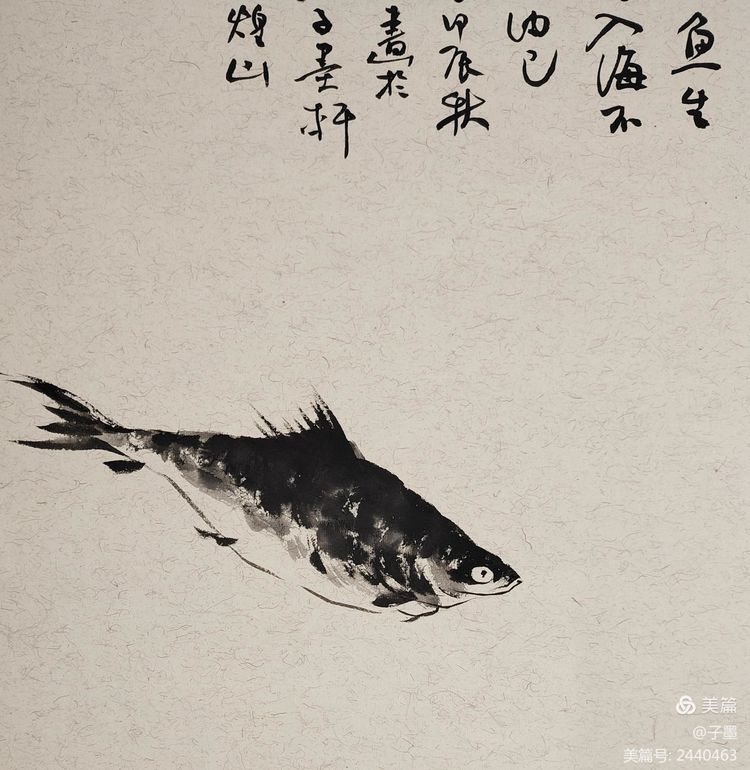 鱼生
入海不
由已
甲辰秋
画于
子墨轩
煌山
美篇
@子墨
美篇号: 2440463